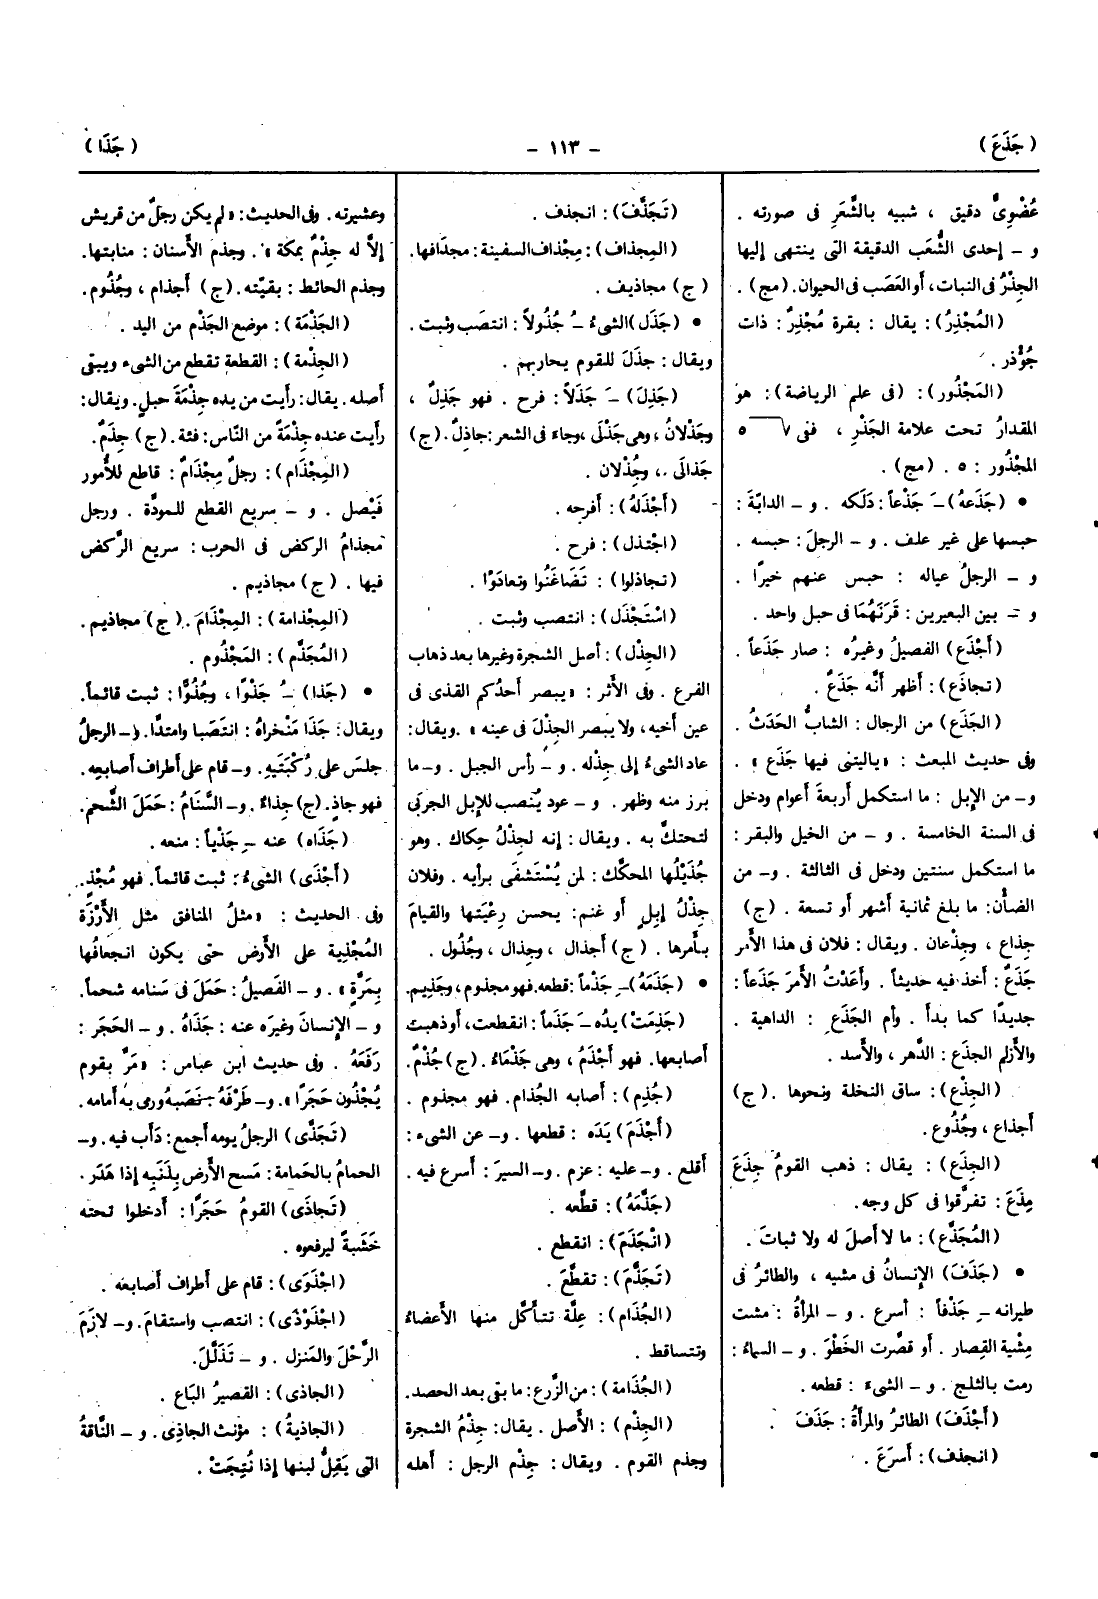 ( جَذَعَ )
- ١١٣ -
( جَذَا )
عُضْوِىٌّ دقيق ، شبيه بالشَّعَرِ فى صورته .
و – إحدى الشُّعَب الدقيقة التى ينتهى إليها
الجِذْرُ فى النبات، أو العَصَب فى الحيوان. (مج) .
(المُجْذِرُ) : يقال : بقرة مُجْذِرٌ : ذات
جُؤْذر .
(المَجْذُور) : (فى علم الرياضة) : هو
المقدارُ تحت علامة الجَذْرِ ، ففى √٥
المجْذُور : ٥ . (مج) .
• (جَذَعهُ) –َ جَذْعاً : دَلَكه . و – الدابّةَ :
حبسها على غير علف . و – الرجلَ : حبسه .
و – الرجلُ عياله : حبس عنهم خيرًا .
و – بين البعيرين : قَرَنَهُمَا فى حبل واحد .
(أَجْذَع) الفصيلُ وغيرُه : صار جَذَعاً .
(تجاذَع) : أظهر أنَّه جَذَعٌ .
(الجَذَع) من الرجال : الشابُّ الحَدَثُ .
وفى حديث المبعث : «ياليتنى فيها جَذَع» .
و – من الإبل : ما استكمل أربعةَ أعوام ودخل
فى السنة الخامسة . و – من الخيل والبقر :
ما استكمل سنتين ودخل فى الثالثة . و – من
الضأْن: ما بلغ ثمانية أشهر أو تسعة . (ج)
جِذاع ، وجِذْعان . ويقال : فلان فى هذا الأَمر
جَذَعٌ : أخذ فيه حديثاً . وأَعَدْتُ الأمرَ جَذَعاً :
جديدًا كما بدأَ . وأم الجَذَع : الداهية .
والأَزلم الجذَع : الدَّهر ، والأَسد .
(الجِذْع) : ساق النخلة ونحوها . (ج)
أجذاع ، وجُذُوع .
(الجِذَع) : يقال : ذهب القومُ جِذَعَ
مِذَعَ : تفرَّقوا فى كل وجه.
(المُجَذَّع) : ما لا أصلَ له ولا ثباتَ .
• (جَذَفَ) الإنسانُ فى مشيه ، والطائرُ فى
طيرانه –ِ جَذْفاً : أسرع . و – المرأةُ : مشت
مِشْية القِصار . أو قصَّرت الخَطْوَ . و – السماءُ :
رمت بالثلج . و – الشىءَ : قطعه.
(أَجْذَفَ) الطائرُ والمرأةُ : جَذَفَ .
(انجذف) : أَسرَعَ .
(تَجَذَّفَ) : انجذف .
(المِجذاف) : مِجْذاف السفينة : مجدافها.
(ج) مجاذيف .
• (جَذَل) الشىءُ –ُ جُذُولاً : انتصَب وثبت .
ويقال : جذَلَ للقوم يحاربهم .
(جَذِلَ) –َ جَذَلاً : فرح . فهو جَذِلٌ ،
وجَذْلانُ ، وهى جَذْلَى ، وجاء فى الشعر : جاذِلٌ . (ج)
جَذالَى ، وجُذْلان .
(أَجْذَلهُ) : أَفرحه .
(اجتذل) : فرح .
(تجاذلوا) : تَضَاغَنُوا وتعادَوْا .
(اسْتَجْذَل) : انتصب وثبت .
(الجِذْل) : أصل الشجرة وغيرها بعد ذهاب
الفرع . وفى الأَثر : «يبصر أحدُكم القذى فى
عين أخيه، ولا يبصر الجِذْلَ فى عينه» . ويقال :
عاد الشىءُ إلى جِذْله . و – رأس الجبل . و – ما
برز منه وظهر . و – عود يُنصب للإبل الجربَى
لتحتكَّ به . ويقال : إنه لجِذْلُ حِكاك . وهو
جُذَيْلُها المحكَّك : لمن يُسْتَشفَى برأيه . وفلان
جِذْلُ إبلٍ أو غنم: يحسن رِعْيَتها والقيامَ
بأَمرها . (ج) أجذال ، وجِذال ، وجُذُول .
• (جَذَمَهُ) –ِ جَذْماً : قطعه. فهو مجذوم ، وجَذِيم.
(جَذِمَتْ) يدُه –َ جَذَماً : انقطعت، أو ذهبت
أصابعها. فهو أَجْذَمُ ، وهى جَذْماءُ . (ج) جُذْمٌ.
(جُذِم) : أصابه الجُذام. فهو مجذوم .
(أَجْذَمَ) يَدَه : قطعها . و – عن الشىء :
أقلع . و – عليه : عزم . و – السيرَ : أسرع فيه .
(جَذَّمَهُ) : قطَّعه .
(انْجَذَمَ) : انقطع .
(تَجَذَّمَ) : تقطَّعَ .
(الجُذَام) : عِلَّة تتأَكَّل منها الأَعضاءُ
وتتساقط .
(الجُذَامة) : من الزَّرع : ما بقى بعد الحصد.
(الجِذْم) : الأَصل . يقال : جِذْمُ الشجرة
وجذم القوم . ويقال : جِذْم الرجل : أهله
وعشيرته . وفى الحديث : « لم يكن رجلٌ من قريش
إلاَّ له جِذْمٌ بمكة » . وجذم الأَسنان : منابتها.
وجذم الحائط : بقيّته. (ج) أجذام ، وجُذُوم.
(الجَذْمة) : موضع الجَذْم من اليد .
(الجِذْمة) : القطعة تقطع من الشىء ويبقى
أصله . يقال: رأيت من يده جِذْمَةَ حبلٍ. ويقال:
رأيت عنده جِذْمَةً من النّاس: فئة . (ج) جِذَمٌ.
(المِجْذَام) : رجلٌ مِجْذَامٌ : قاطع للأُمور
فَيْصل . و – سريع القطع للمودَّة . ورجل
مجذامُ الركض فى الحرب : سريع الرَّكض
فيها . (ج) مجاذيم .
(المِجْذامة) : المِجْذَامَ . (ج) مجاذيم .
(المُجَذَّم) : المَجْذُوم .
• (جَذا) –ُ جَذْوًا ، وجُذُوًّا : ثبت قائماً.
ويقال: جَذَا مَنْخراهُ : انتَصَبا وامتدَّا. و – الرجلُ
جلسَ على رُكْبَتَيهِ. و – قام على أطراف أصابعه.
فهو جاذٍ. (ج) جِذاءُ. و – السَّنَامُ : حَمَلَ الشَّحم.
(جَذَاه) عنه –ِ جَذْياً : منعه .
(أَجْذَى) الشىءُ : ثبت قائماً. فهو مُجْذٍ.
وفى الحديث : «مثلُ المنافق مثل الأَرْزَة
المُجْذِية على الأَرض حتى يكون انجعافُها
بِمَرَّةٍ» . و – الفَصيلُ : حَمَلَ فى سَنامه شحماً.
و – الإنسانَ وغيرَه عنه : جَذَاهُ . و – الحَجَر :
رَفَعَهُ . وفى حديث ابن عباس : «مَرَّ بقوم
يُجْذُون حَجَرًا» . و – طَرْفَهُ : نَصَبهُ ورمى به أمامه.
(تَجَذَّى) الرجلُ يومه أجمع : دَأب فيه . و –
الحمامُ بالحَمامة : مَسح الأرض بِذَنَبِه إذا هَدَر .
(تَجاذَى) القومُ حَجَرًا : أدخلوا تحته
خَشَبةً ليرفعوه .
(اجْذَوَى) : قام على أطراف أصابعه .
(اجْذَوْذَى) : انتصب واستقامَ. و – لازَمَ
الرَّحْلَ والمَنزل . و – تَذَلَّلَ.
(الجاذى) : القصيرُ البَاع .
(الجاذيةُ) : مؤنث الجاذِى . و – النَّاقةُ
التى يَقِلُّ لبنها إذا نُتِجَتْ .